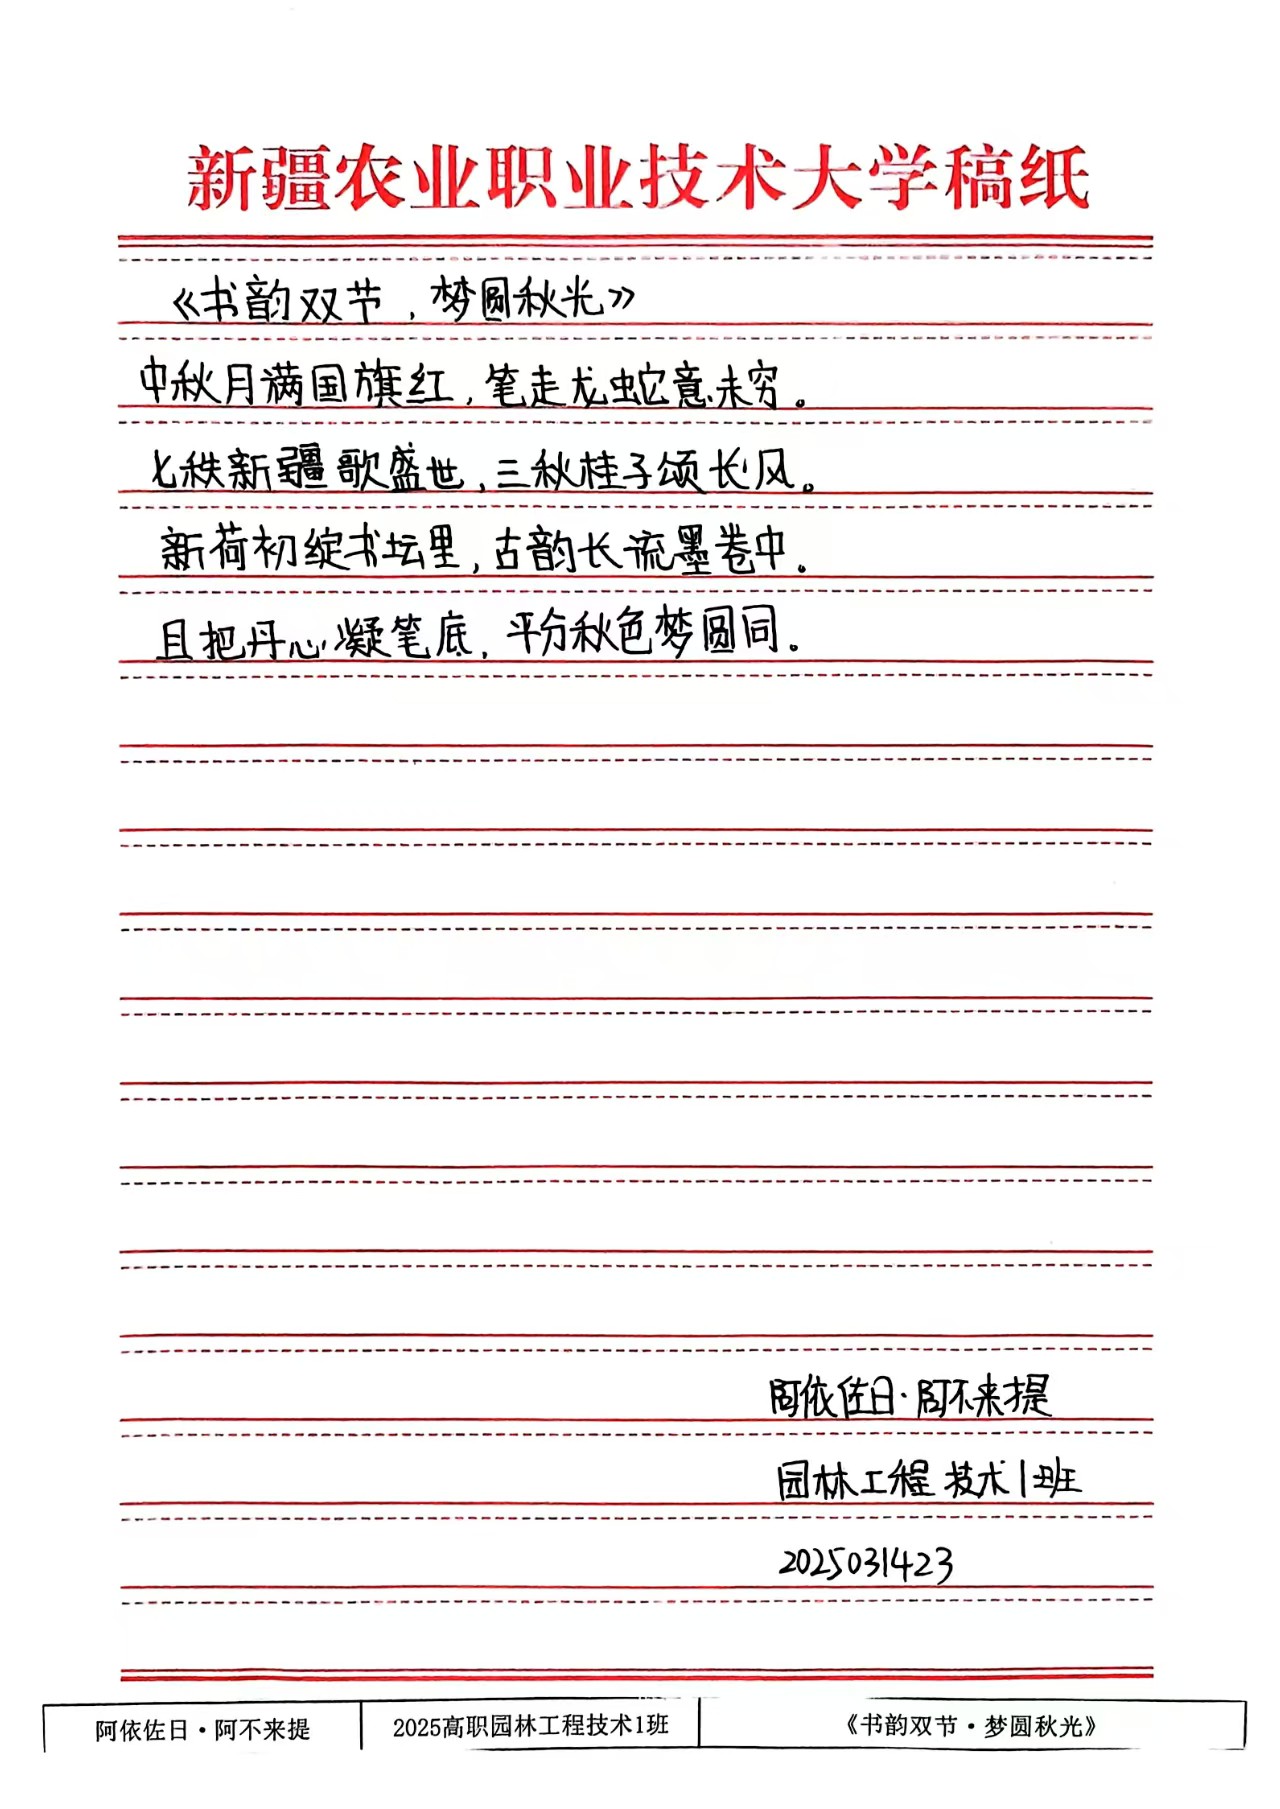 新疆农业职业技术大学稿纸
《书韵双节，梦圆秋光》
中秋月满国旗红，笔走龙蛇意未穷。
七秩新疆歌盛世，三秋桂子颂长风。
新荷初绽书坛里，古韵长流墨卷中。
且把丹心凝笔底，平分秋色梦圆同。
阿依佐日·阿不来提
园林工程技术1班
2025031423
阿依佐日·阿不来提 2025高职园林工程技术1班 《书韵双节·梦圆秋光》